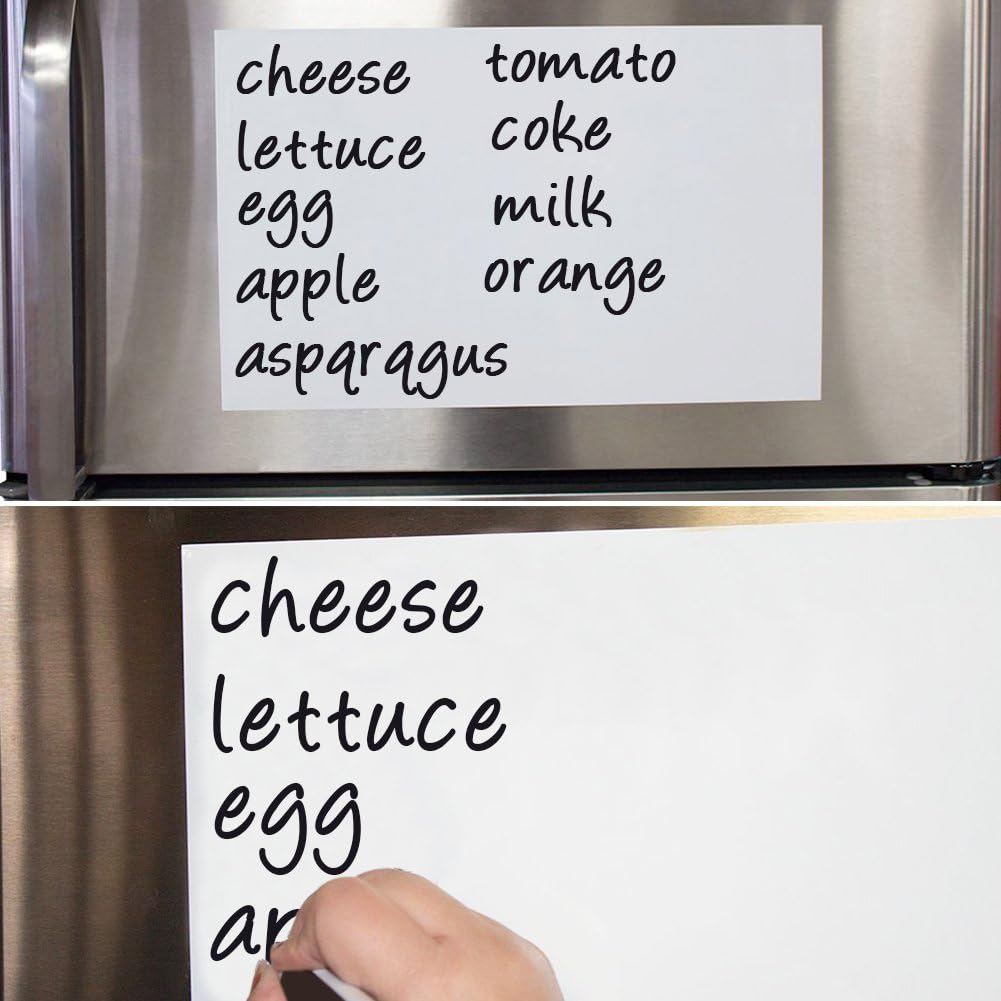 cheese
lettuce
egg
apple
asparagus
tomato
coke
milk
orange
cheese
lettuce
egg
ap